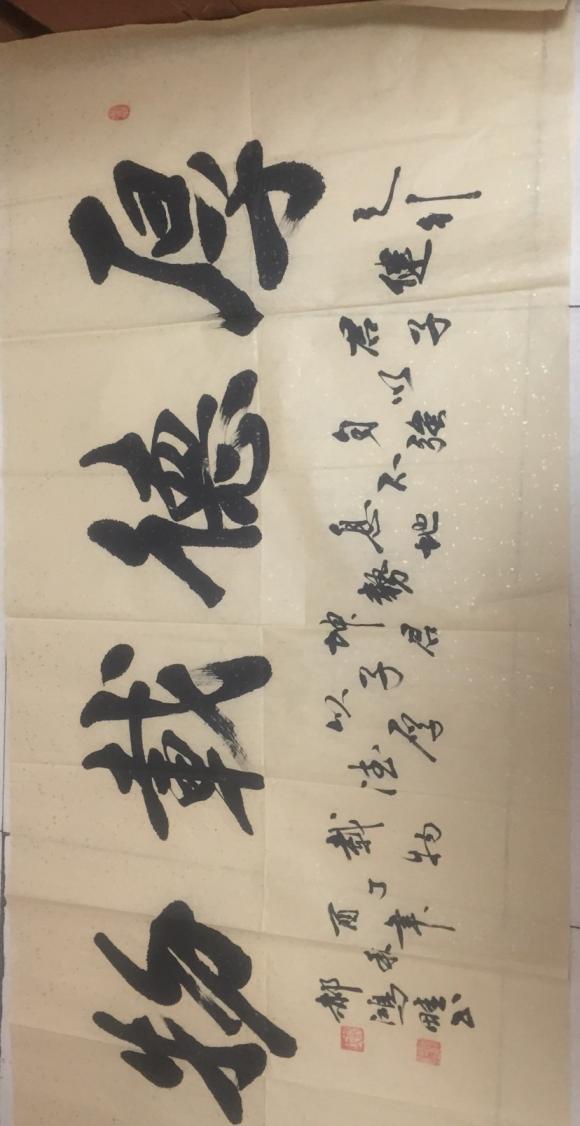 厚德載物
天行健君子以自強不息地勢坤君子以厚德載物
丁酉年秋郝鴻書